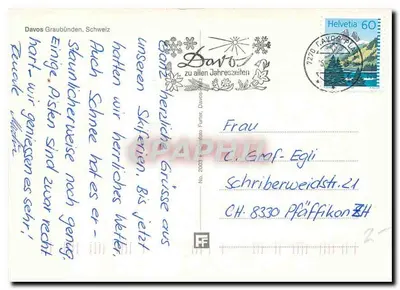 Davos Graubünden, Schweiz
Ganz herzliche Grüsse aus
unseren Skiferien. Bis jetzt
hatten wir herrliches Wetter.
Auch Schnee hat es er-
staunlicherweise noch genug.
Einige Pisten sind zwar recht
hart - wir geniessen es sehr!
Davos
zu allen Jahreszeiten
Helvetia 60
7270 DAVOS
Frau
C. Graf-Egli
Schriberweidstr. 21
CH-8330 Pfäffikon ZH
2.-